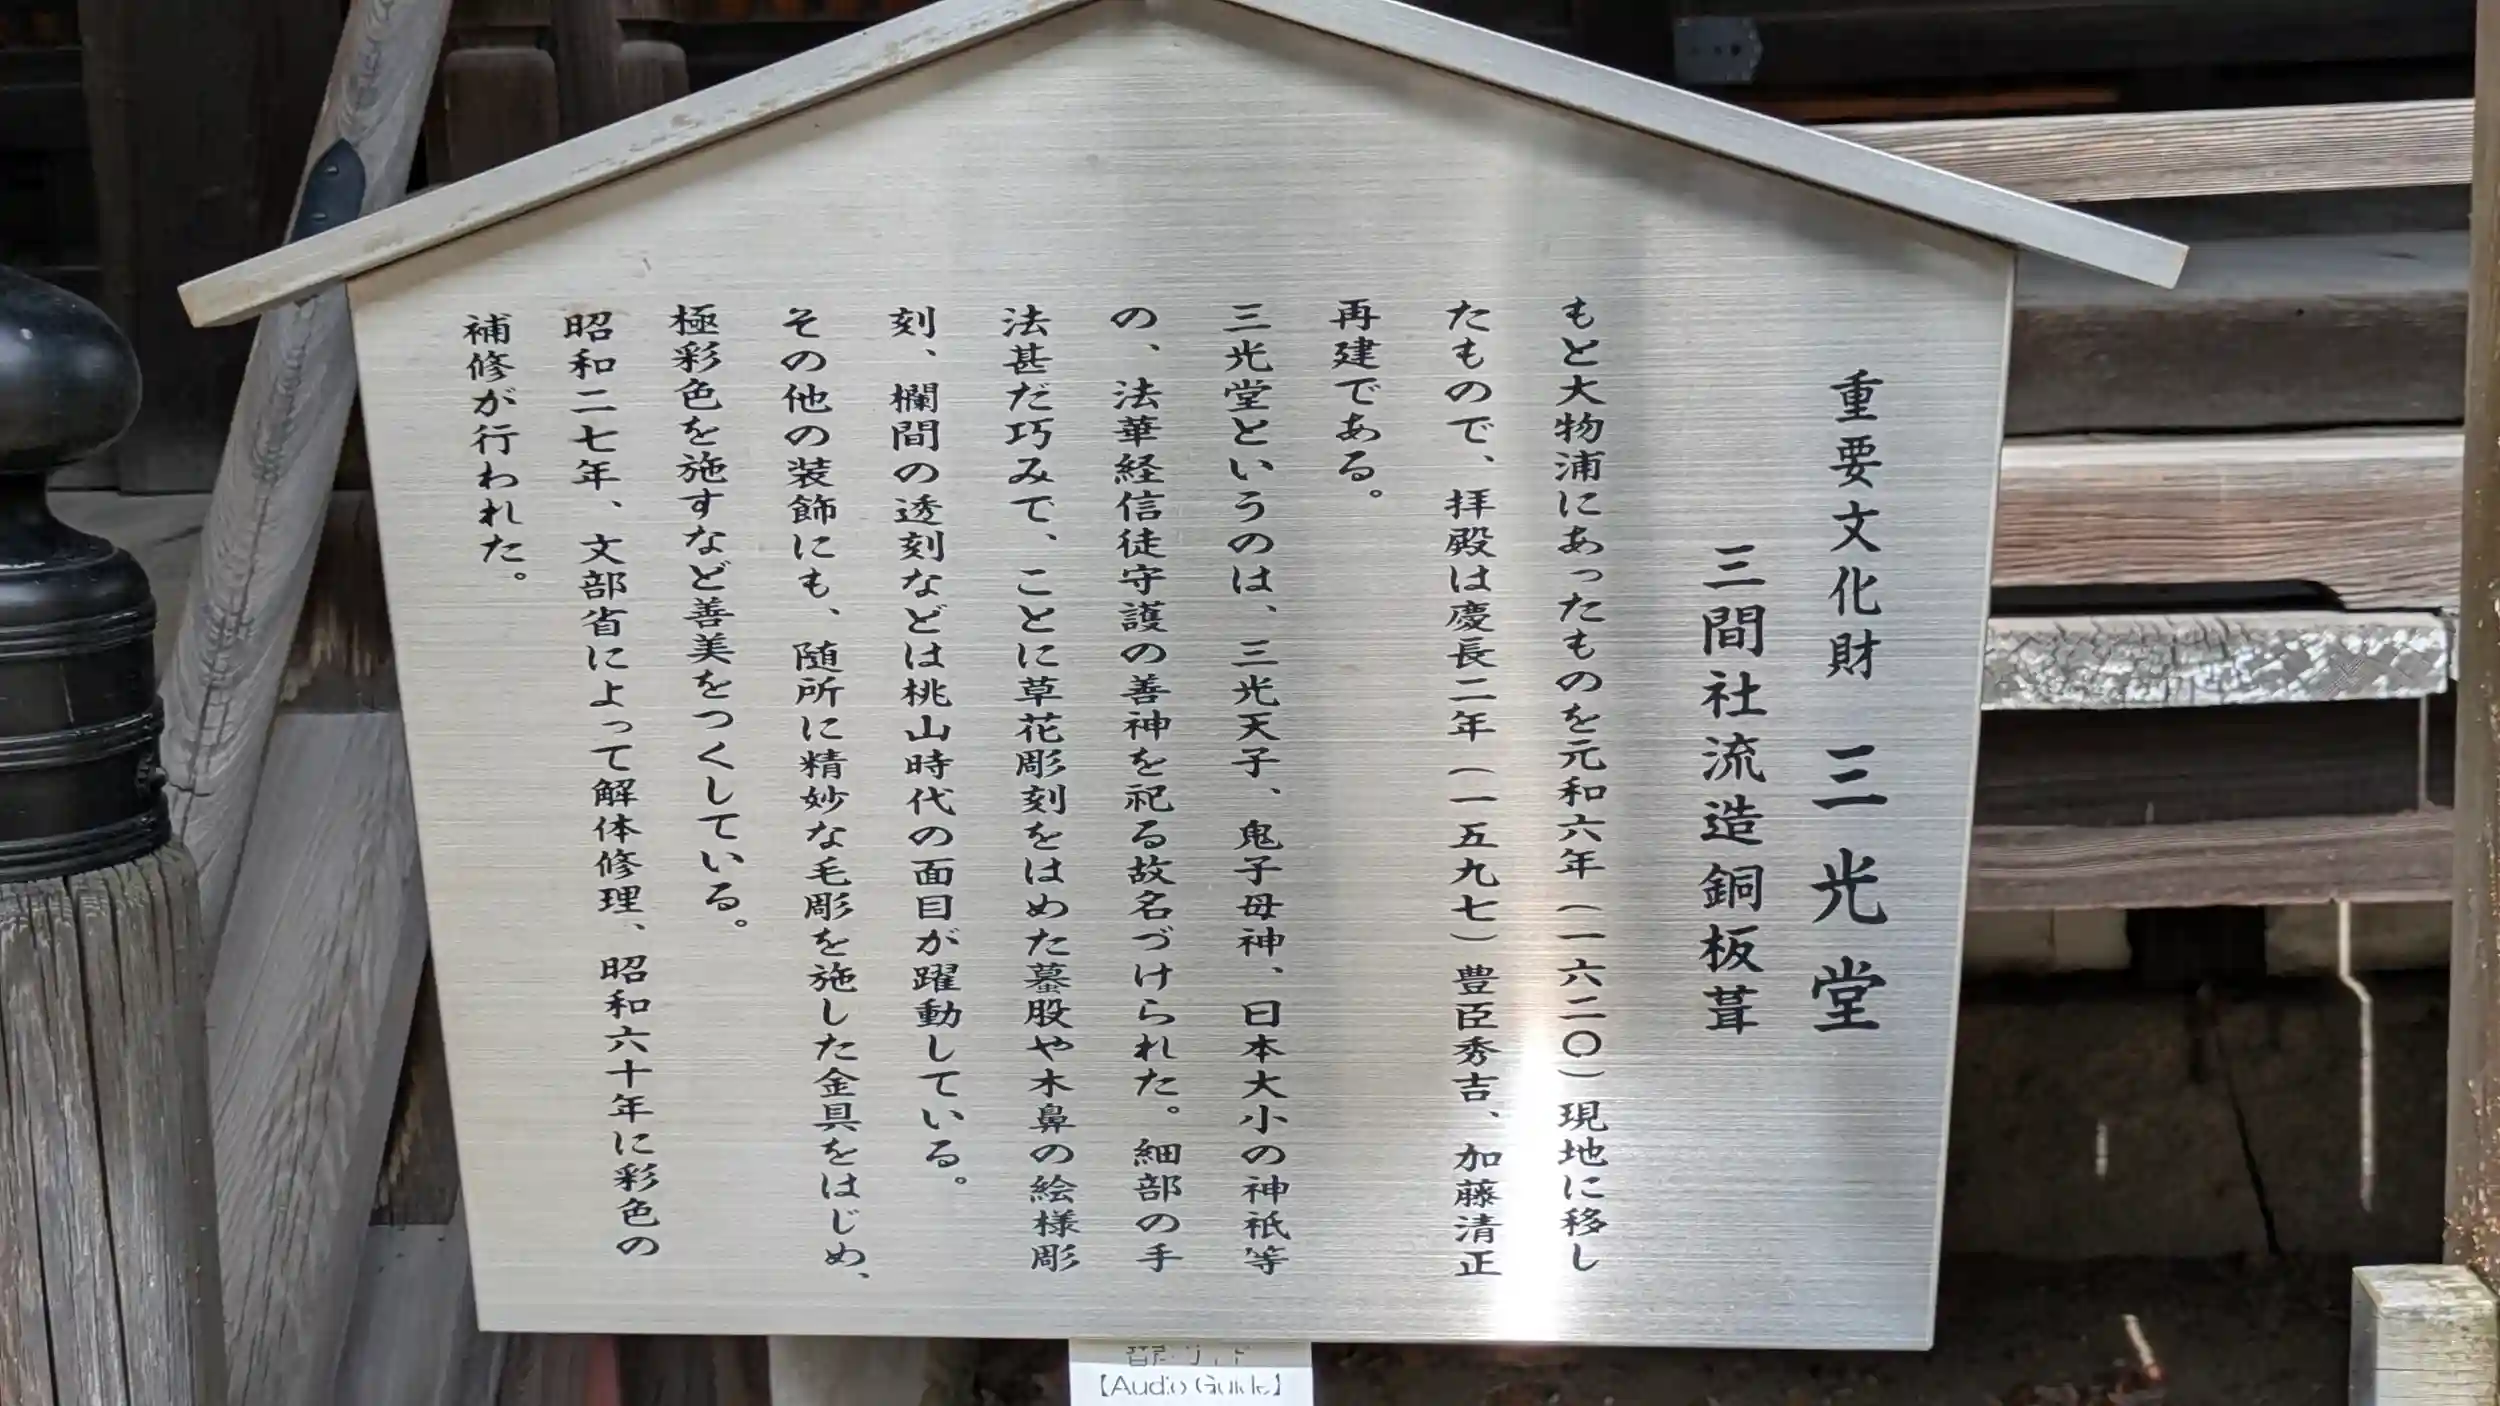 重要文化財 三光堂
三間社流造銅板葺
もと大物浦にあったものを元和六年（一六二〇）現地に移し
たもので、拝殿は慶長二年（一五九七）豊臣秀吉、加藤清正
再建である。
三光堂というのは、三光天子、鬼子母神、日本大小の神祇等
の、法華経信徒守護の善神を祀る故名づけられた。細部の手
法甚だ巧みで、ことに草花彫刻をはめた蟇股や木鼻の絵様彫
刻、欄間の透刻などは桃山時代の面目が躍動している。
その他の装飾にも、随所に精妙な毛彫を施した金具をはじめ、
極彩色を施すなど善美をつくしている。
昭和二七年、文部省によって解体修理、昭和六十年に彩色の
補修が行われた。
【Audio Guide】